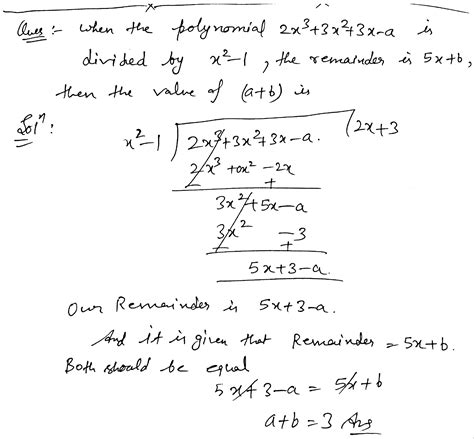 Ques :- When the polynomial 2x³+3x²+3x-a is
divided by x²-1, the remainder is 5x+b,
then the value of (a+b) is
Solⁿ:
x²-1 ) 2x³+3x²+3x-a. ( 2x+3
2x³ +0x² -2x
- +
3x²+5x-a
3x² -3
- +
5x+3-a.
Our Remainder is 5x+3-a.
And it is given that Remainder = 5x+b.
Both should be equal
5x+3-a = 5x+b
a+b=3 Ans